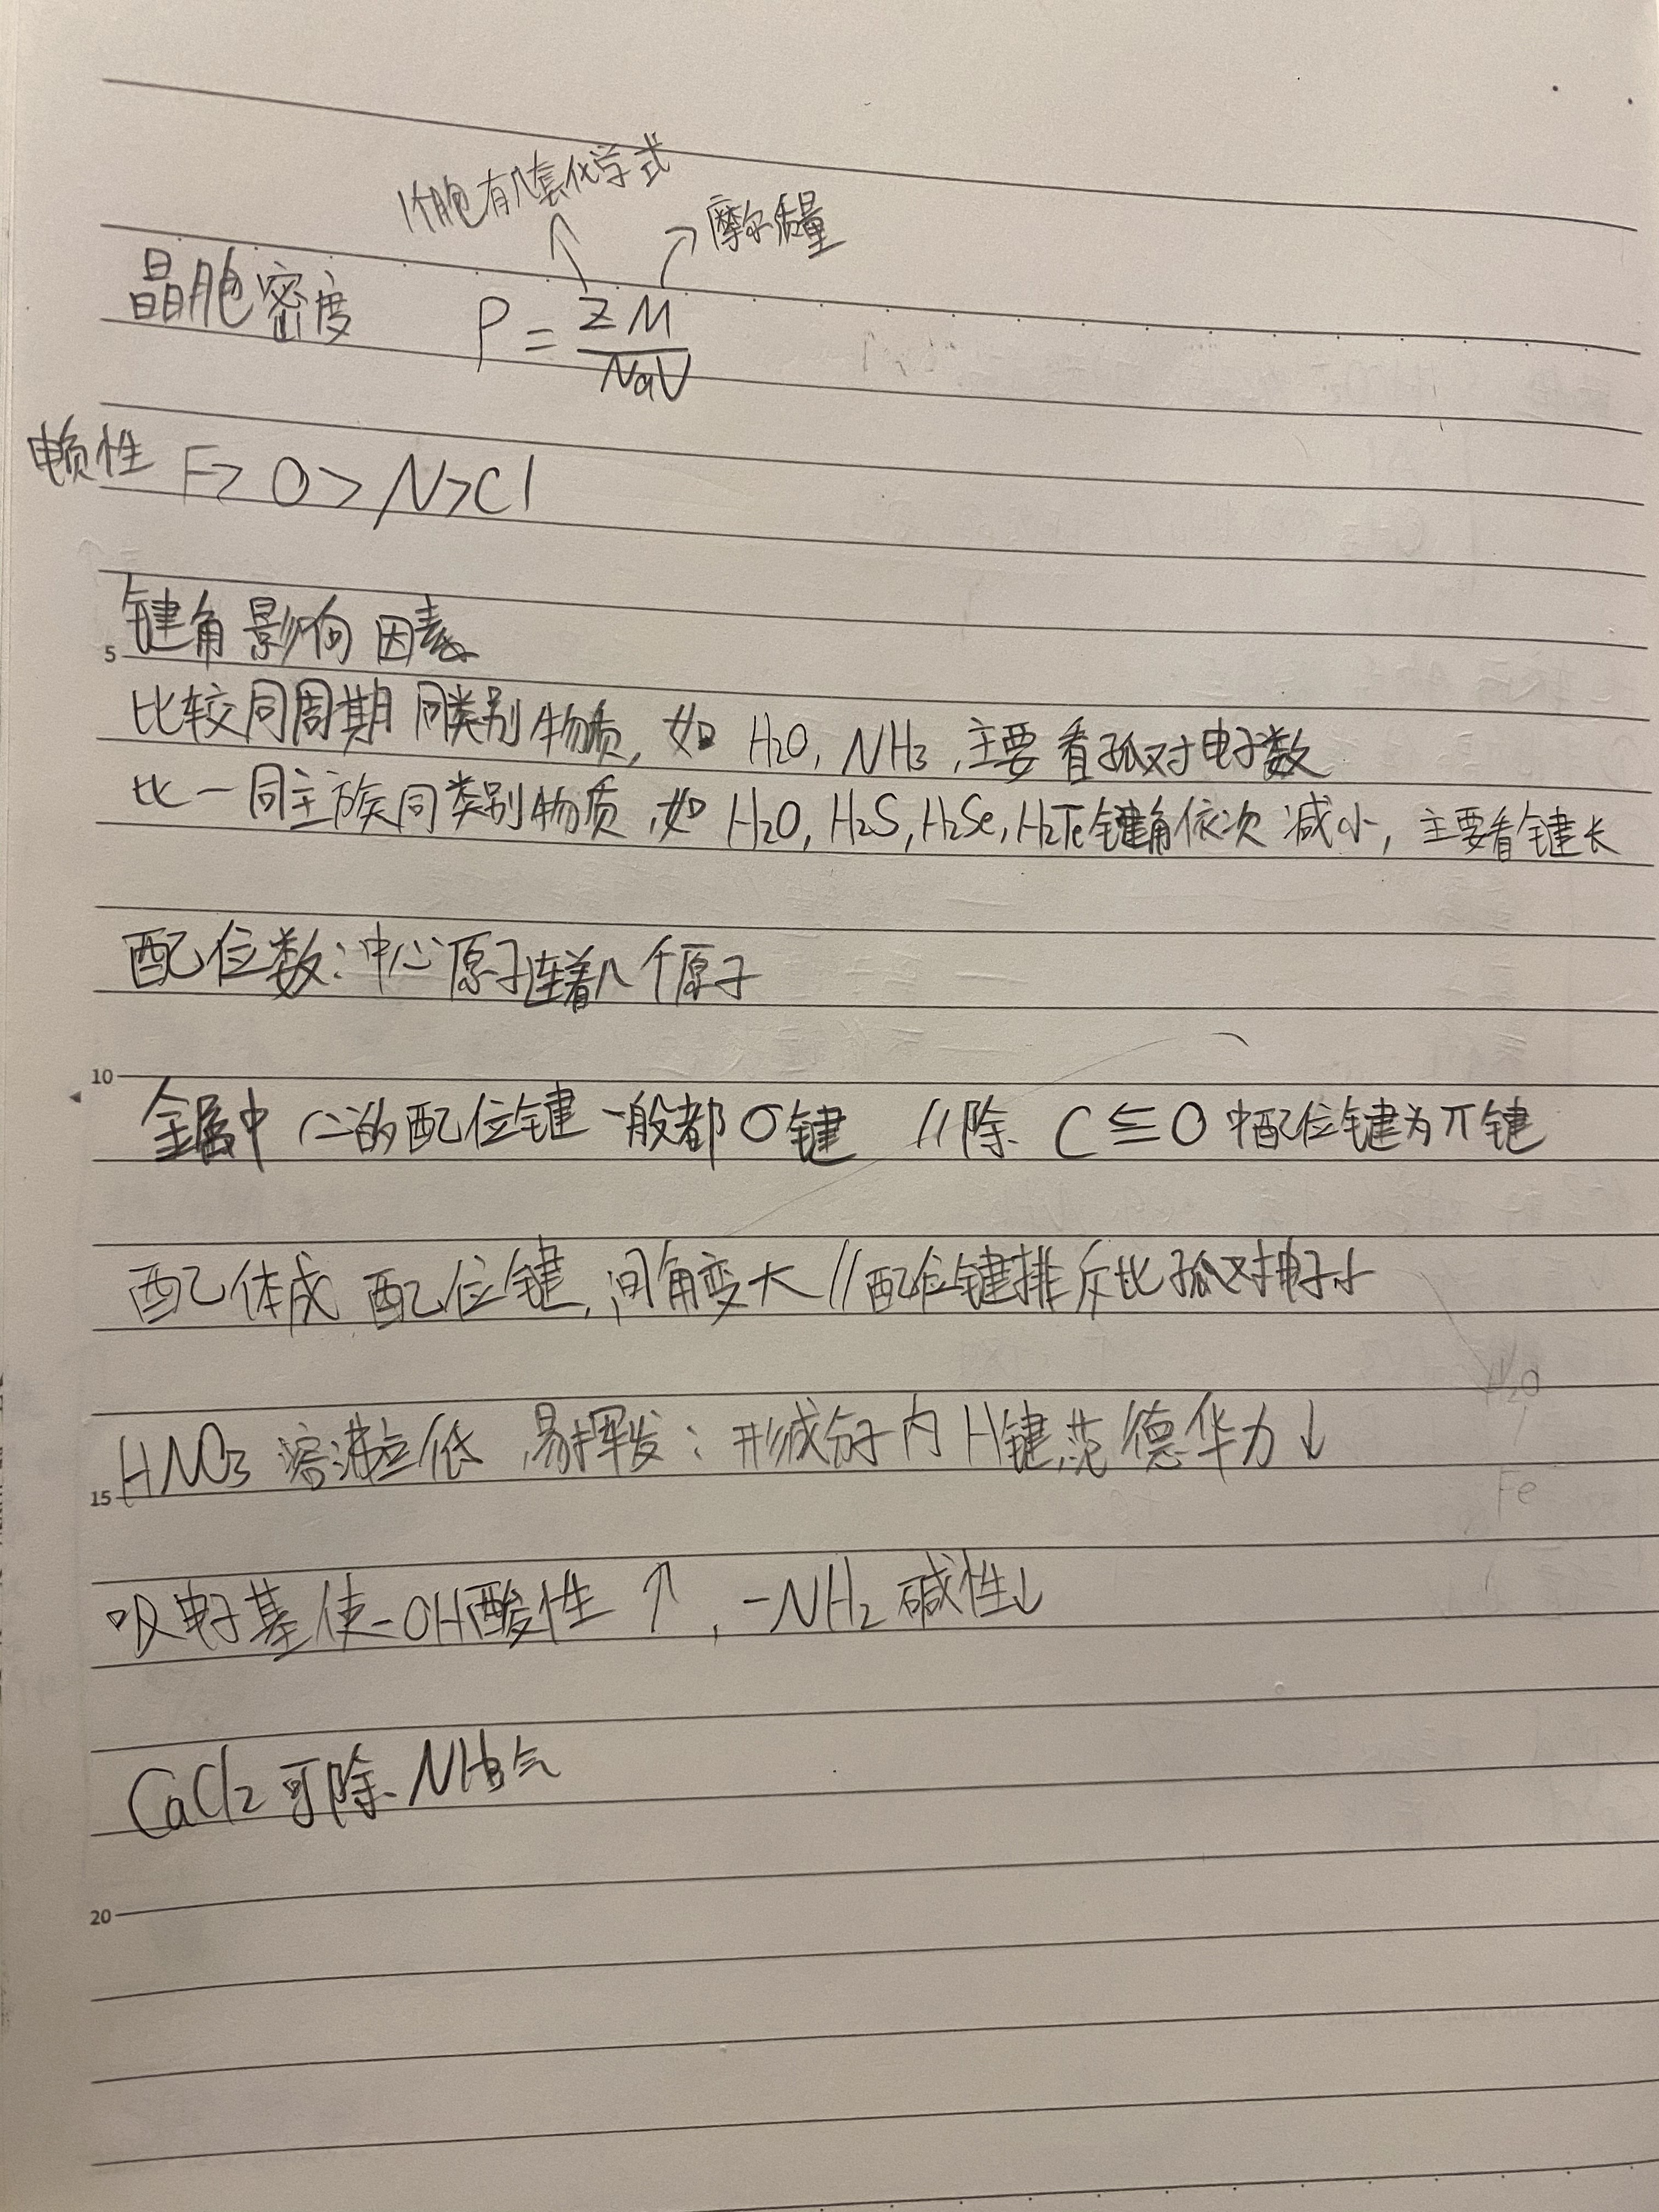 1个胞有几套化学式
摩尔质量
晶胞密度 ρ = ZM / NaV
电负性 F > O > N > Cl
5 键角影响因素
比较同周期同类别物质,如 H2O, NH3,主要看孤对电子数
比一同主族同类别物质,如 H2O, H2S, H2Se, H2Te键角依次减小,主要看键长
配位数:中心原子连着几个原子
10 金属中心的配位键一般都σ键 //除 C≦O 中配位键为π键
配体成配位键,间角变大//配位键排斥比孤对电子小
H2O
HNO3 溶沸点低 易挥发:形成分子内H键,范德华力↓
Fe
15
吸电子基使-OH酸性↑,-NH2碱性↓
CaCl2可除NH3气
20